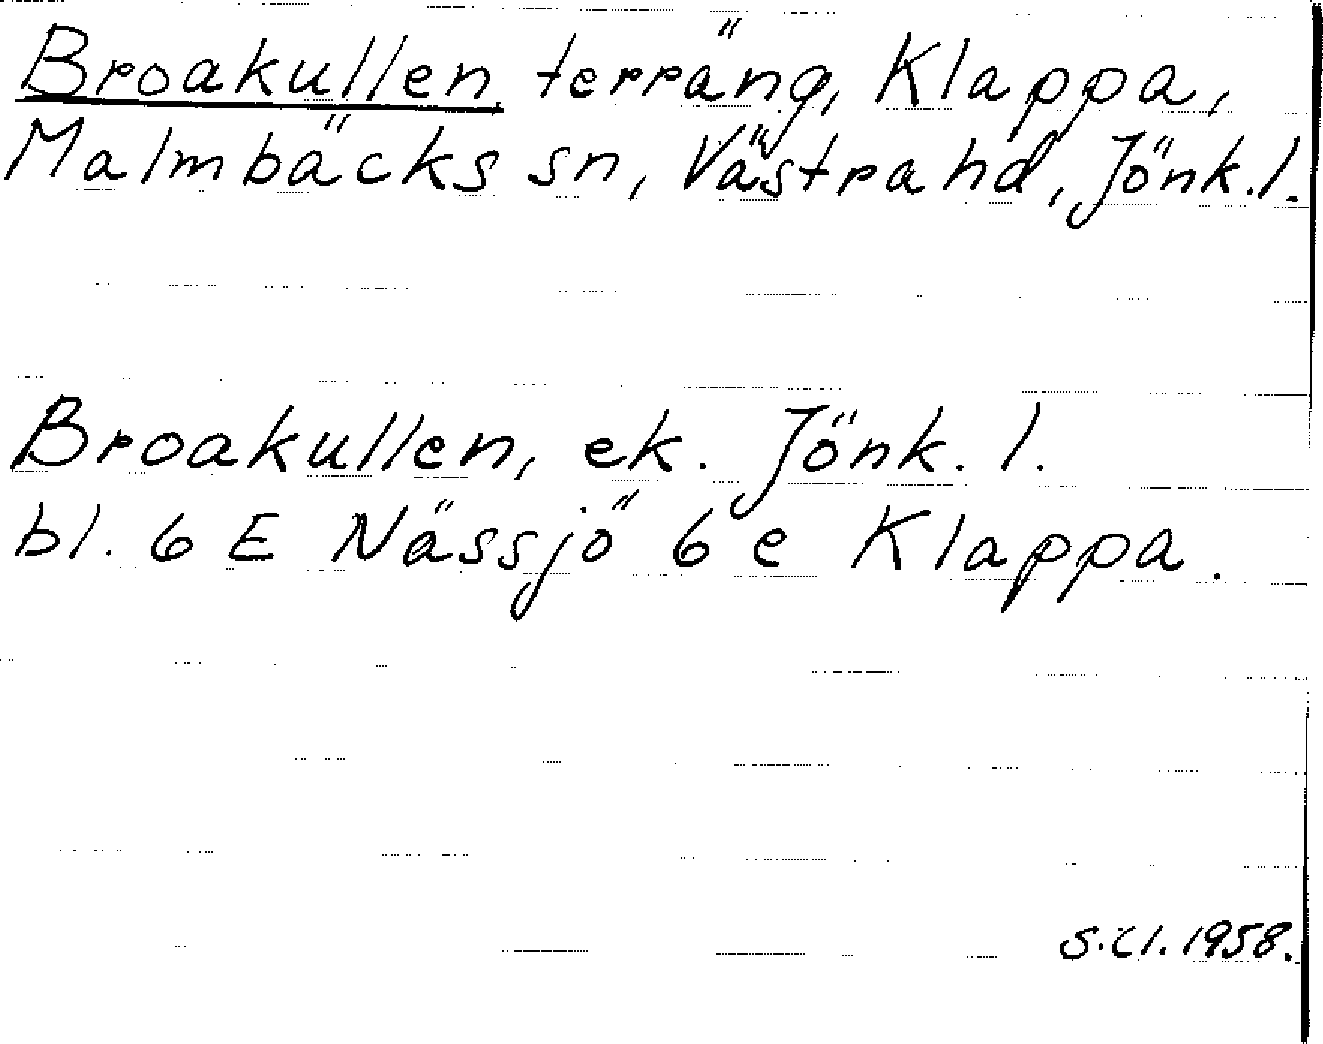 Broakullen terräng, Klappa,
Malmbäcks sn, Västra hd, Jönk. l.
Broakullen, ek. Jönk. l.
bl. 6 E Nässjö 6 e Klappa.
S.Cl. 1958.